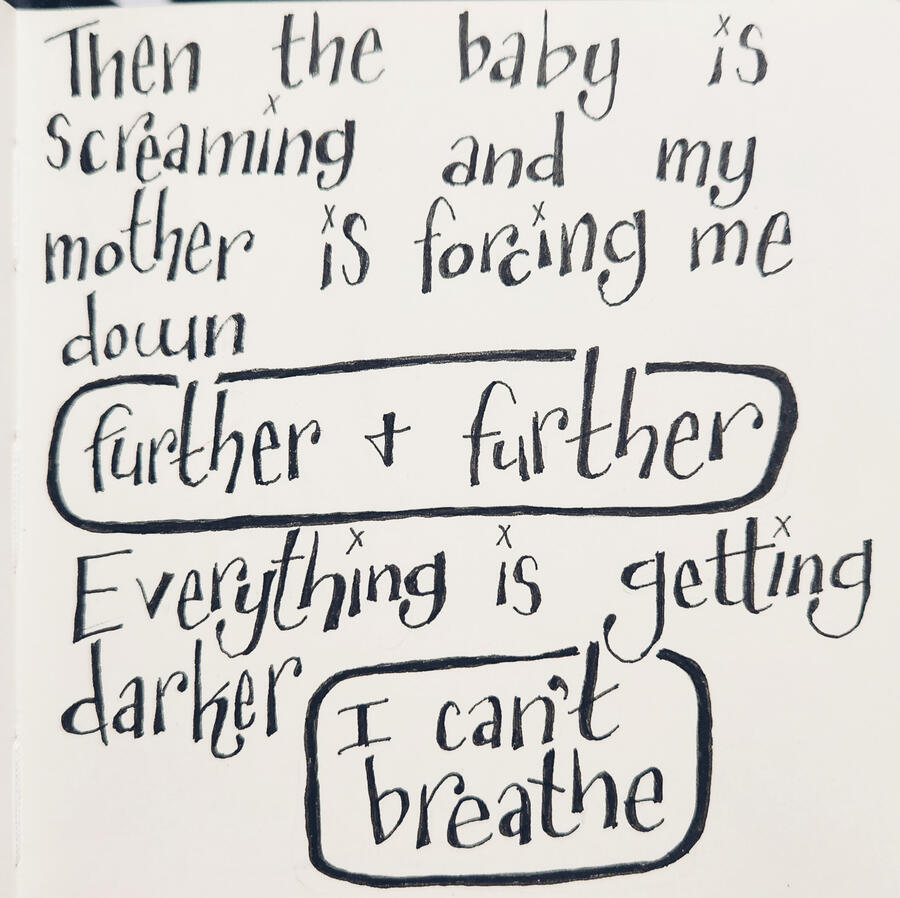 Then the baby is
screaming and my
mother is forcing me
down
further + further
Everything is getting
darker
I can't
breathe